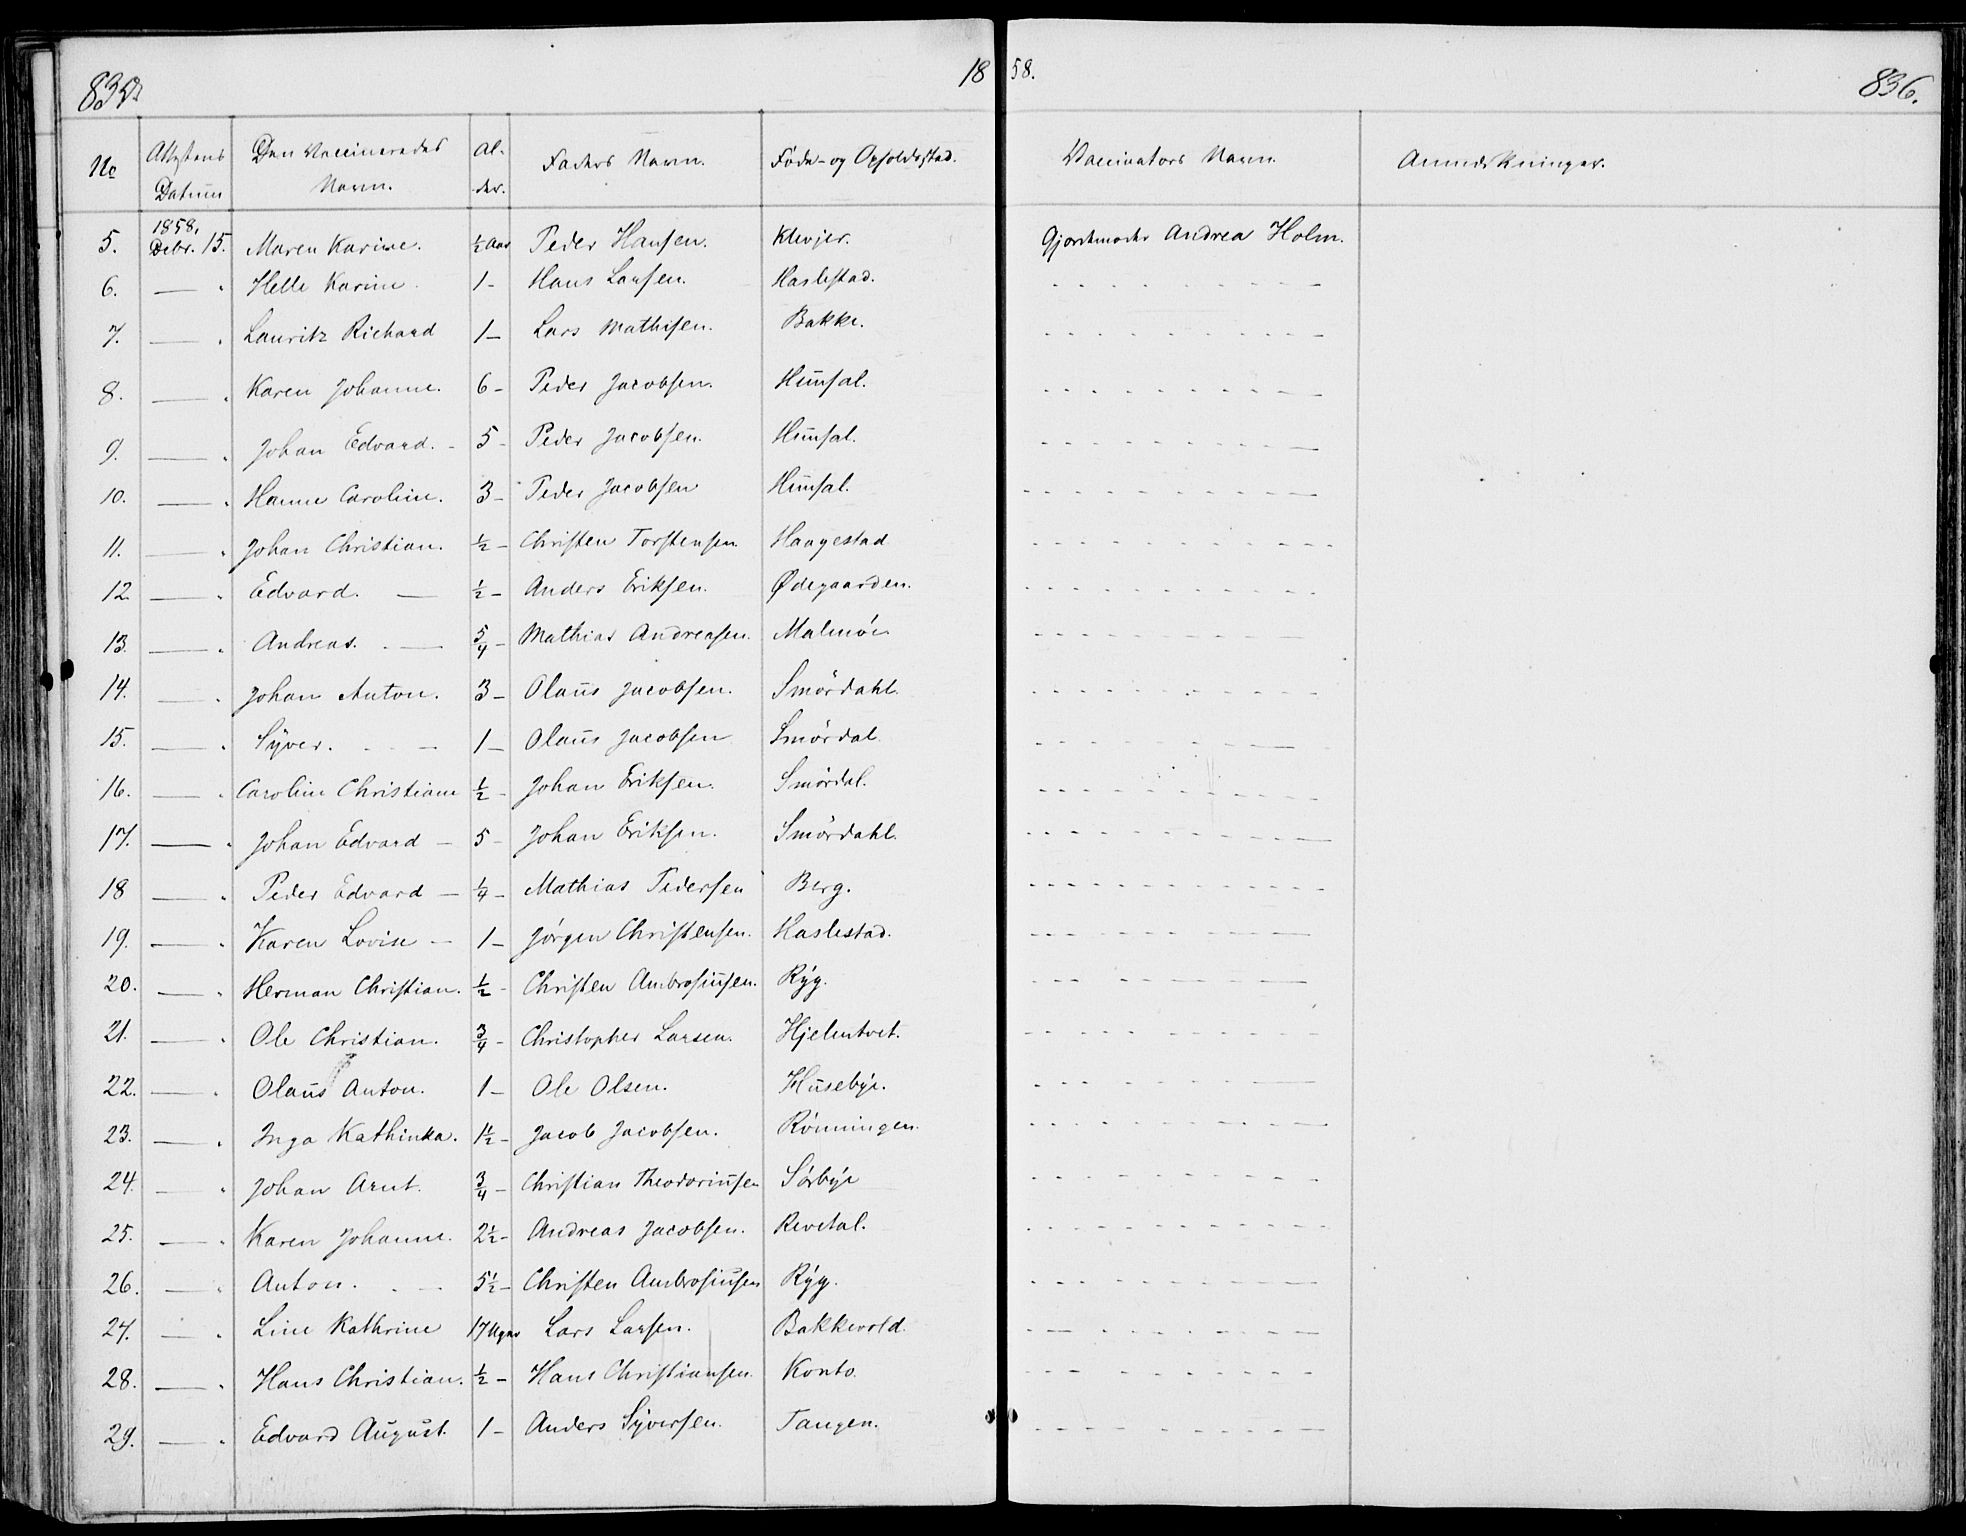 835.
1858.
836.
No | Attestens Datum | Den Vaccineredes Navn. | Al-der. | Faders Navn. | Føde- og Opholdssted. | Vaccinators Navn. | Anmærkninger.
5. | 1858, Debr. 15. | Maren Karine. | ½ Aar | Peder Hansen. | Klevjer. | Gjordemoder Andrea Holm.
6. | — " | Helle Karine | 1 - | Hans Larsen. | Haslestad. | - - - -
7. | — " | Lauritz Richard | 1 - | Lars Mathisen. | Bakke. | - - - -
8. | — " | Karen Johanne. | 6 - | Peder Jacobsen. | Himsal. | - - - -
9. | — " | Johan Edvard. - | 5 - | Peder Jacobsen. | Himsal. | - - - -
10. | — " | Hanne Caroline. | 3 - | Peder Jacobsen | Himsal. | - - - -
11. | — " | Johan Christian. | ½ - | Christen Torstensen. | Haagestad | - - - -
12 | — " | Edvard. — | ½ - | Anders Eriksen. | Ødegaarden. | - - - -
13. | — " | Andreas. — | 5/4 - | Mathias Andreasen. | Malmøe | - - - -
14. | — " | Johan Anton. | 3 - | Olaus Jacobsen. | Smørdahl. | - - - -
15. | — " | Syver. - - | 1 - | Olaus Jacobsen | Smørdal. | - - - -
16. | — " | Caroline Christiane | ½ - | Johan Eriksen. | Smørdal. | - - - -
17. | — " | Johan Edvard - | 5 - | Johan Eriksen. | Smørdahl. | - - - -
18 | — " | Peder Edvard — | ¼ - | Mathias Pedersen | Berg. | - - - -
19. | — " | Karen Lovise - | 1 - | Jørgen Christensen. | Haslestad. | - - - -
20. | — " | Herman Christian. | ½ - | Christen Ambrosiusen. | Ryg. | - - - -
21. | — " | Ole Christian. | ¾ - | Christopher Larsen. | Hjelmtvet. | - - - -
22. | — " | Olaus Anton. | 1 - | Ole Olsen. | Husebye. | - - - -
23. | — " | Inga Kathinka. | 1½ - | Jacob Jacobsen. | Rønningen. | - - - -
24. | — " | Johan Arnt. | ¾ - | Christian Theodoriusen | Sørbye | - - - -
25. | — " | Karen Johanne. | 2½ - | Andreas Jacobsen. | Revetal. | - - - -
26. | — " | Anton. - - | 5½ - | Christen Ambrosiusen | Ryg. | - - - -
27. | — " | Line Kathrine | 17 Uger | Lars Larsen. | Bakkevold. | - - - -
28. | — " | Hans Christian. | ½ - | Hans Christiansen. | Konto. | - - - -
29. | — " | Edvard August. | 1 - | Anders Syversen. | Tangen. | - - - -